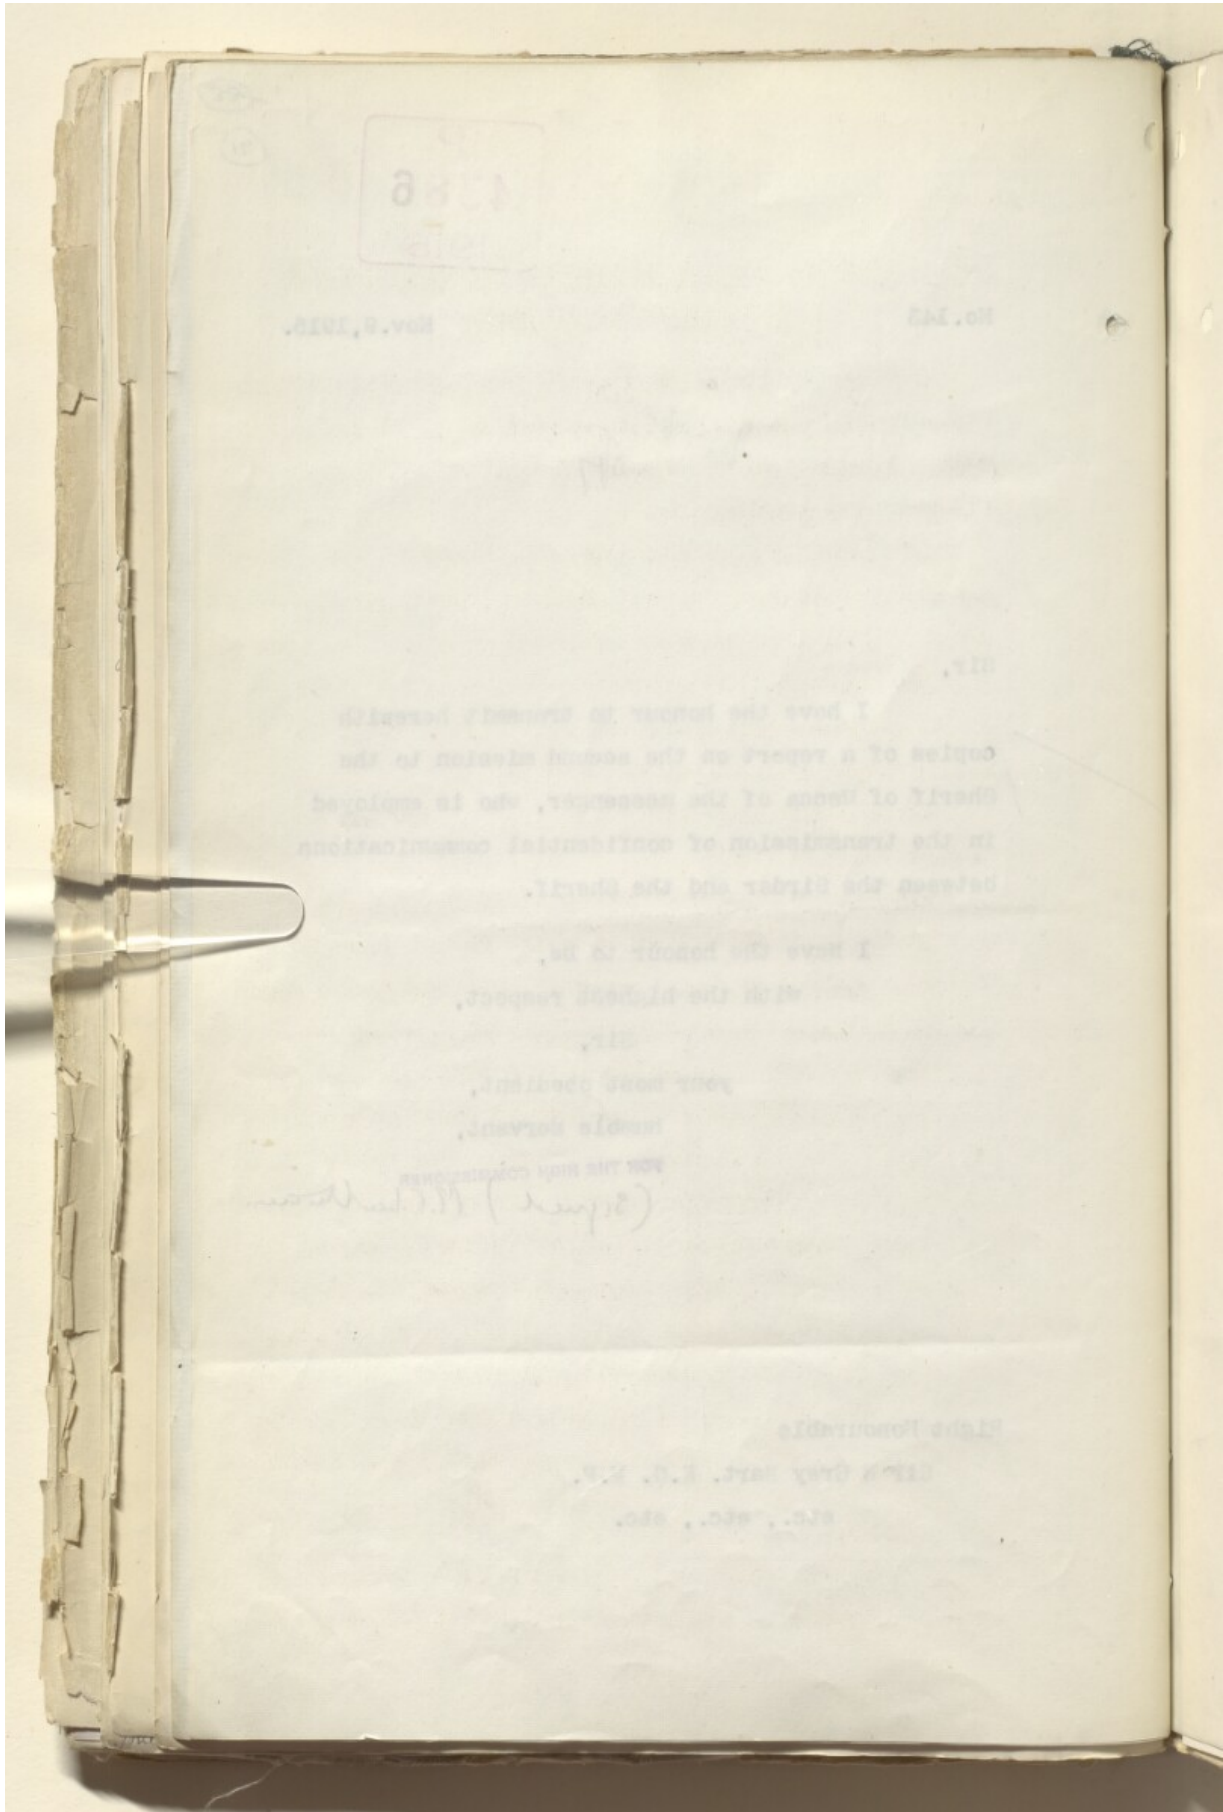 4386
No.143 Nov.9,1915.
Sir,
I have the honour to transmit herewith
copies of a report on the second mission to the
Sherif of Mecca of the messenger, who is employed
in the transmission of confidential communications
between the Sirdar and the Sherif.
I have the honour to be,
with the highest respect,
Sir,
your most obedient,
humble servant,
FOR THE HIGH COMMISSIONER
(Signed)
Right Honourable
Sir E Grey Bart. K.G. M.P.
etc., etc., etc.